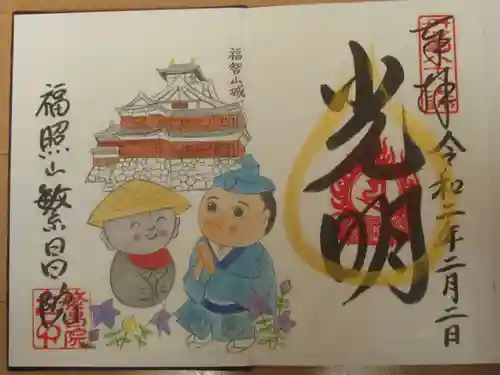 奉拝
令和二年二月二日
光明
福智山城
福照山繁昌院